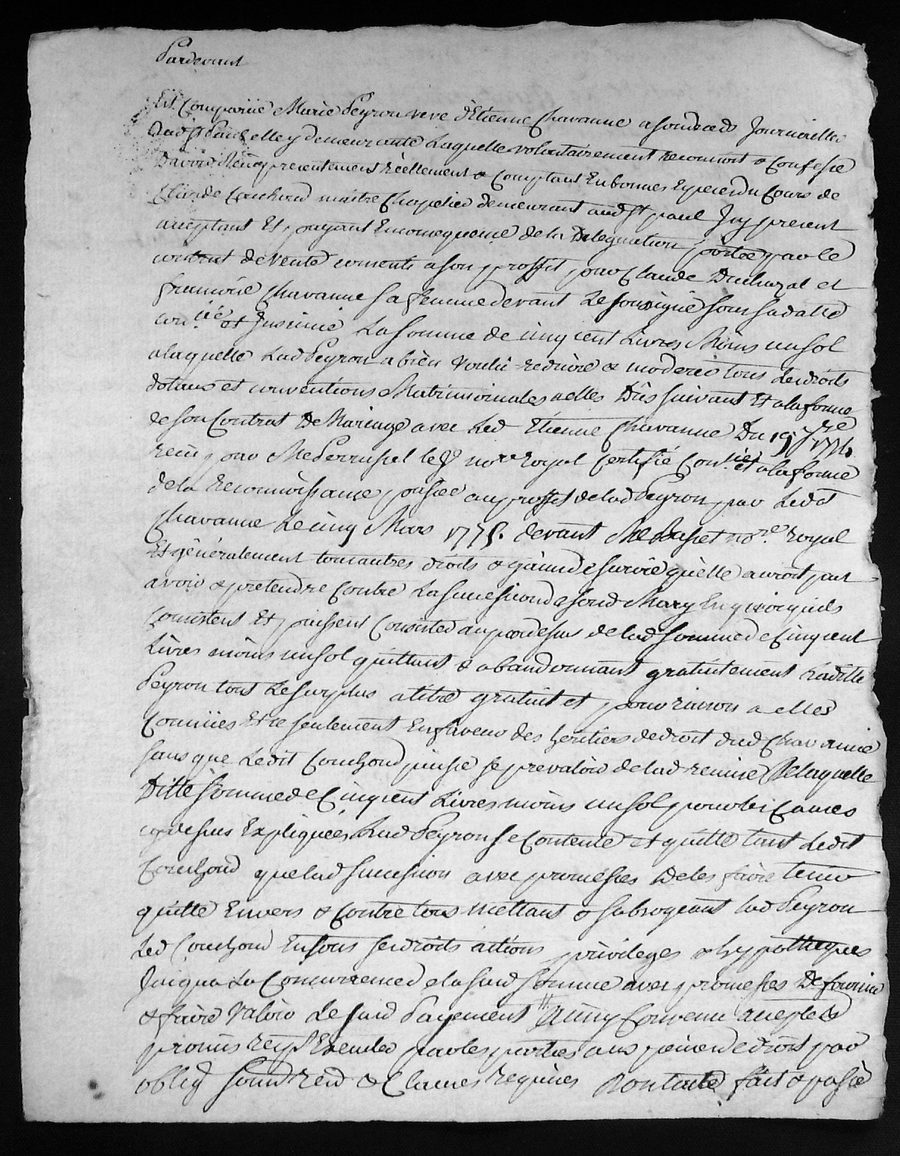 Pardevant
Est Comparüe Marie Peyron veve d'Etienne Chavanne journaliere
dud St Paul elle y demeurante Laquelle volontairement reconnoit & Confesse
Davoir Reçu présentement réellement & Comptant En bonnes Especes du Cours de
Claude Couchoud maitre Chapelier demeurant aud St paul Jcy present
acceptant Et payant En conséquence de la Délégation portée par le
contrat de Vente consenti a son proffit par Claude Duchazal et
Chavanne sa femme devant Le soussigné sous sa datte
con.lée et Jnsinüé La somme de cinq cent Livres Moins un sol
a laquelle Lad Peyron a bien voulu reduire & moderer tous ses droits
dotaux et conventions Matrimoniales a elles Dûs suivant Et a la forme
de son Contrat De Mariage avec Led Etienne Chavanne Du 19 7bre
reçu par Me not.re Royal Certifié Con.lé et a la forme
de la Reconnoissance passée au proffit de lad Peyron par Ledit
Chavanne Le cinq Mars 1775. devant Me not.re Royal
Et généralement tous autres droits & gains de survie qu'elle auroit pu
avoir & pretendre Contre La succession de son d Mary En quoi qu'ils
Consistent Et puissent Consister au pardessus de lad somme de Cinq cent
Livres moins un sol quittant & abandonnant gratuitement Ladite
Peyron tout Le surplus a titre gratuit et pour raisons a elles
Connües Et ce seulement En faveur des heritiers de droit dud Chavanne
sans que Ledit Couchoud puisse se prevaloir de lad remise De laquelle
Ditte somme de Cinq cent Livres moins un sol pour les Causes
cy dessus Expliquées Lad Peyron se Contente et quitte tant Ledit
Couchoud que lad succession avec promesses De les faire tenir
quitte Envers & Contre tous mettant & subrogeant lad Peyron
Led Couchoud En tous ses droits actions privileges & hypotheques
Jusqu'a La Concurrence de la sud somme avec promesses De fournir
& faire Valoir Le sud Payement Ainsy Convenu accepté
promis recip Executer par les parties aux peines de droit par
oblig soum ren & Clauses requises Dont acte fait & passé